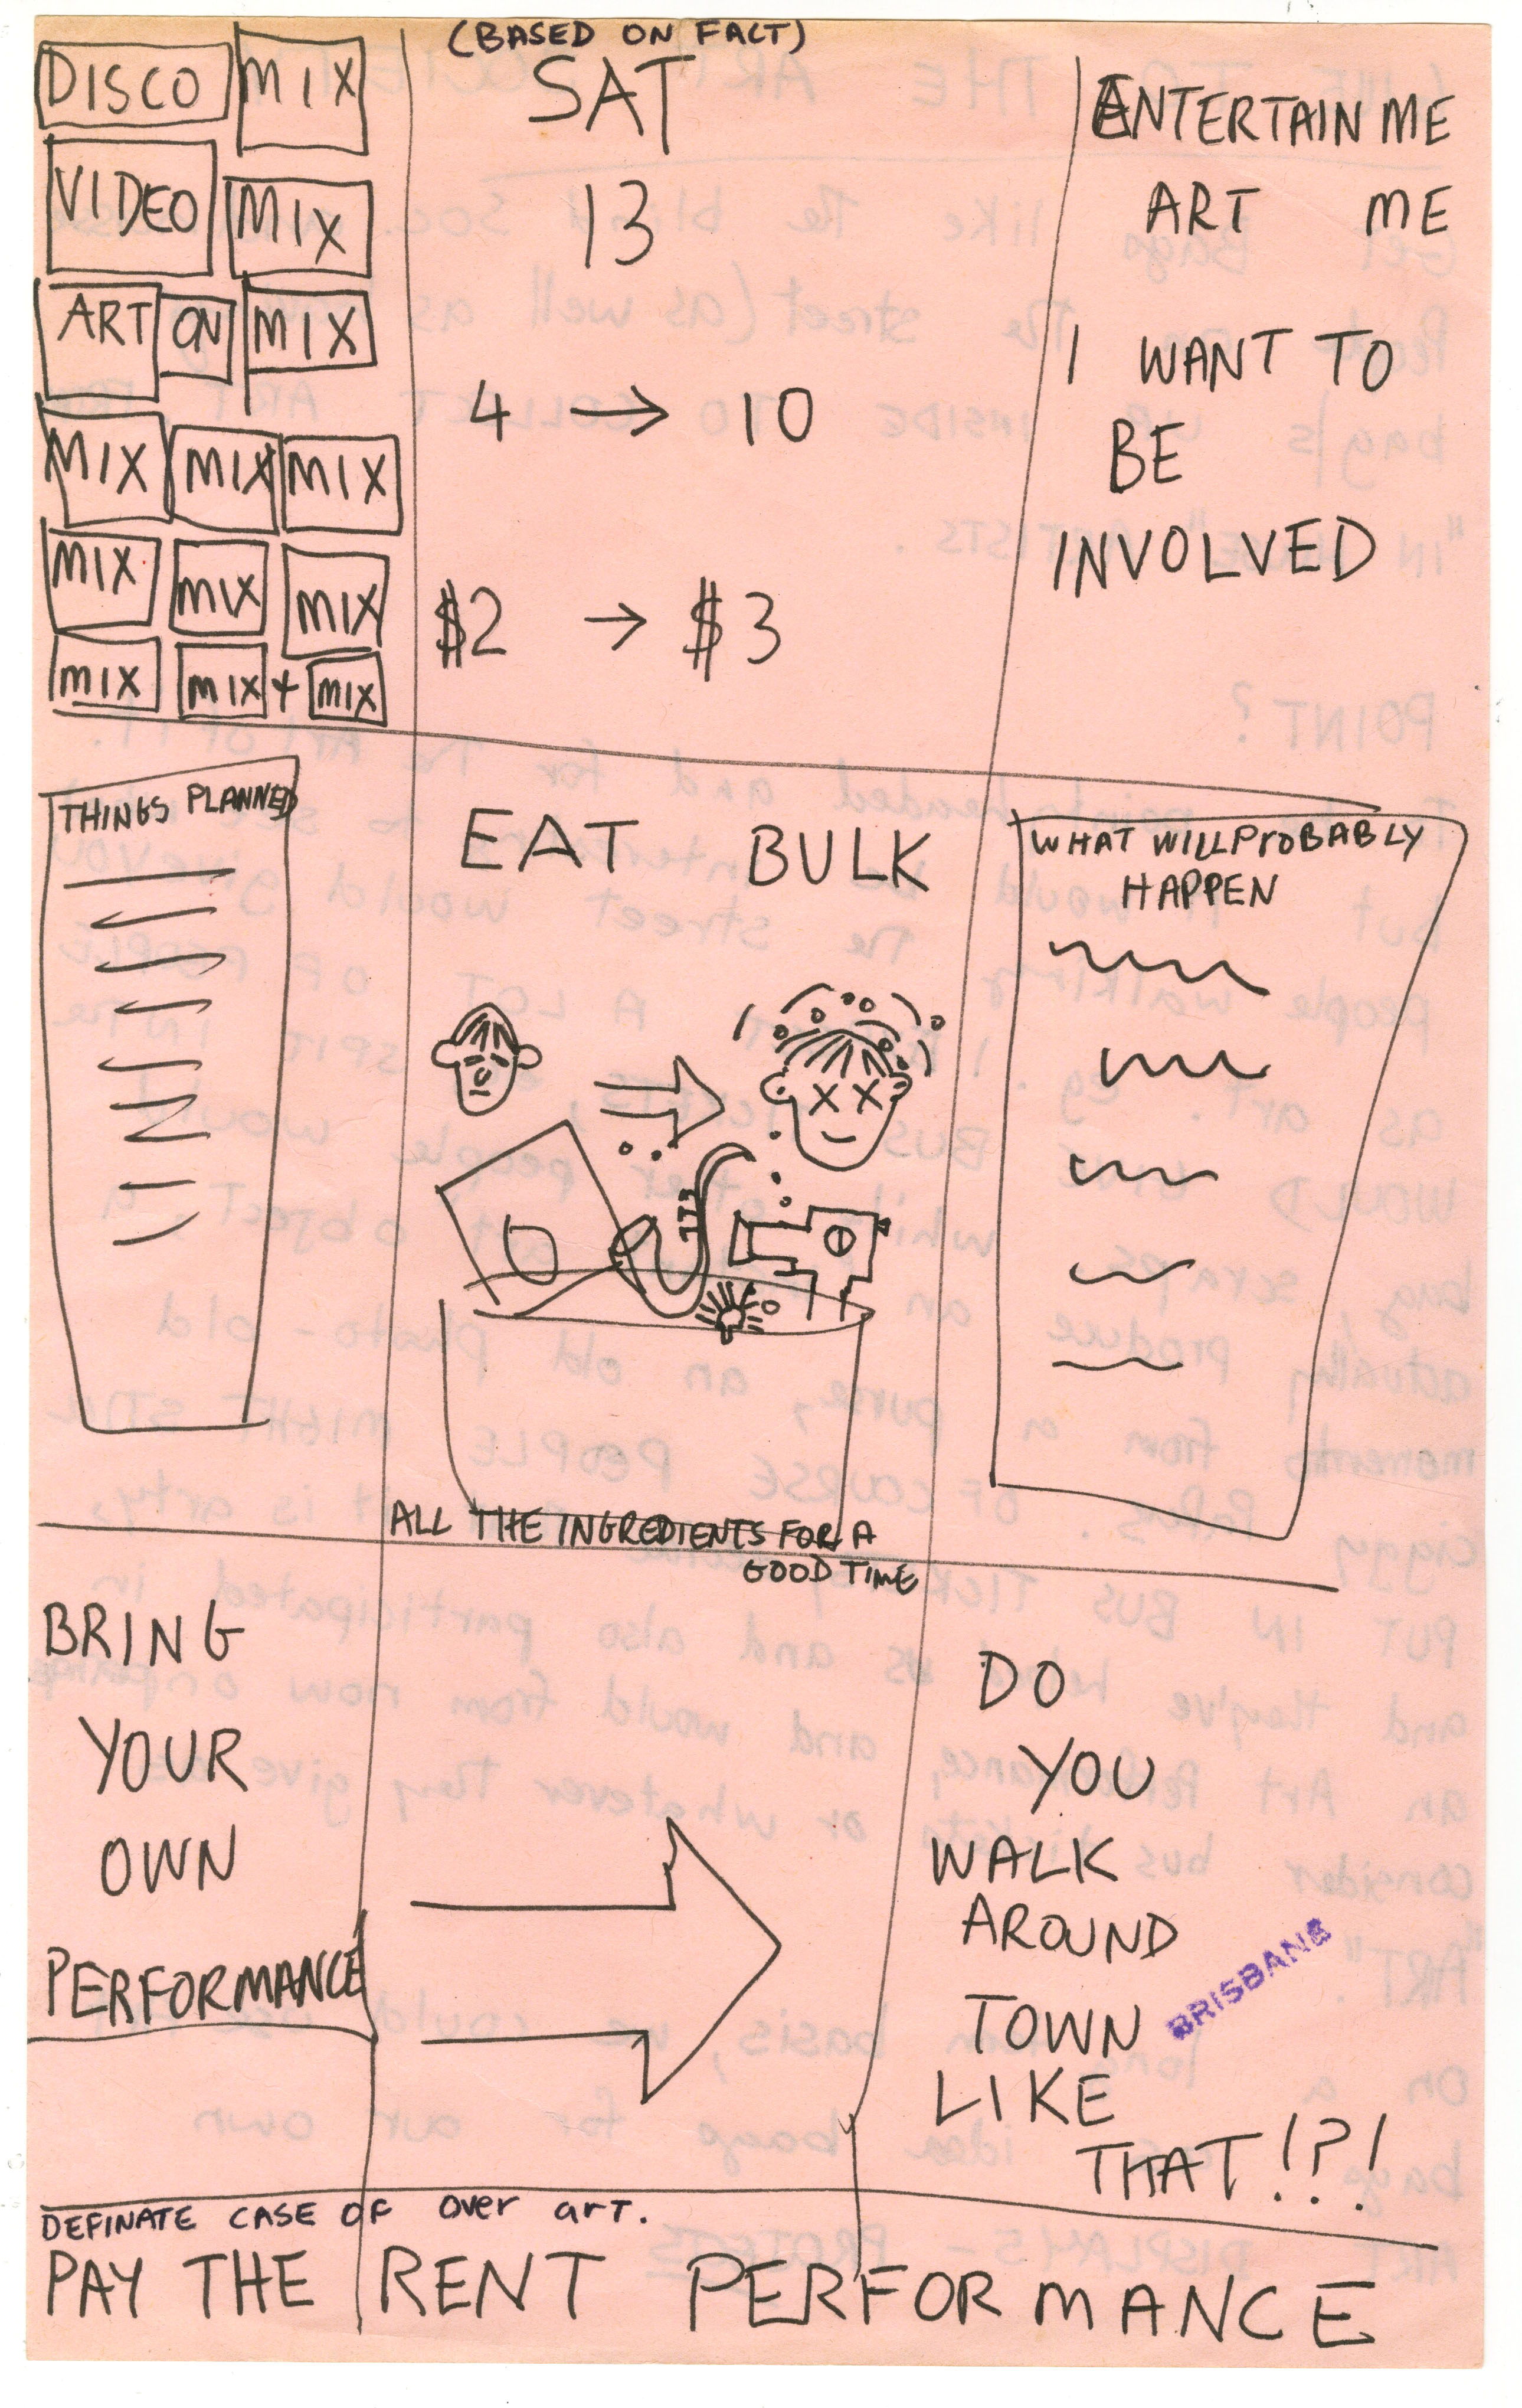 (BASED ON FACT)
DISCO MIX
VIDEO MIX
ART ON MIX
MIX MIX MIX
MIX MIX MIX
MIX MIX + MIX
SAT
13
4 → 10
$2 → $3
ENTERTAIN ME
ART ME
I WANT TO
BE
INVOLVED
THINGS PLANNED
EAT BULK
ALL THE INGREDIENTS FOR A
GOOD TIME
WHAT WILL PROBABLY
HAPPEN
BRING
YOUR
OWN
PERFORMANCE
DO
YOU
WALK
AROUND
TOWN
LIKE
THAT!?!
BRISBANE
DEFINATE CASE OF over art.
PAY THE RENT PERFORMANCE